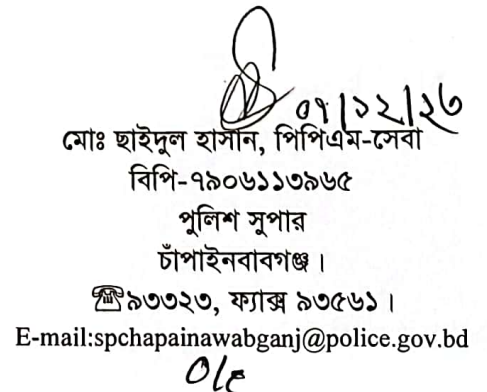 ০৭/১২/২৩
মোঃ ছাইদুল হাসান, পিপিএম-সেবা
বিপি-৭৯০৬১১৩৯৬৫
পুলিশ সুপার
চাঁপাইনবাবগঞ্জ।
☎৯৩৩২৩, ফ্যাক্স ৯৩৫৬১।
E-mail:spchapainawabganj@police.gov.bd